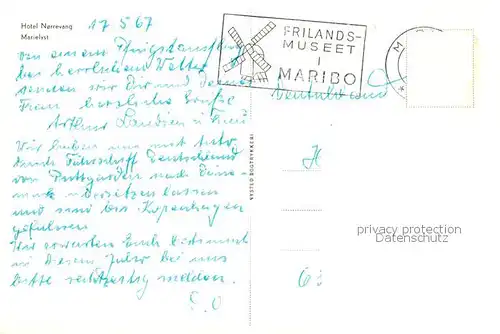 Hotel Nørrevang
Marielyst
17 5 67
FRILANDS-
MUSEET
I
MARIBO
von einem Pfingstausflug
bei herrlichem Wetter
senden wir Dir und Deiner
Frau herzliche Grüße
Arthur
Wir haben uns mit Auto
Fährschiff Deutschland
von Puttgarden nach Däne-
mark übersetzen lassen
und sind bis Kopenhagen
gefahren
Wir erwarten Euch
in diesem Jahr bei uns
bitte rechtzeitig melden.
VYSTED BOGTRYKKERI
privacy protection
Datenschutz